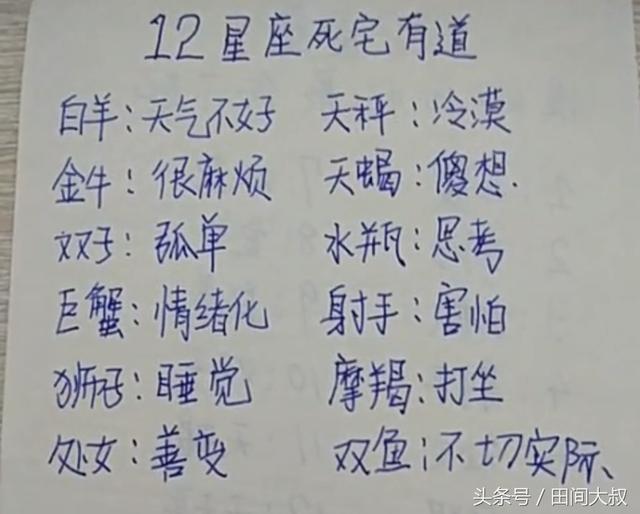 12星座死宅有道
白羊:天气不好 天秤:冷漠
金牛:很麻烦 天蝎:傻想.
双子:孤单 水瓶:思考
巨蟹:情绪化 射手:害怕
狮子:睡觉 摩羯:打坐
处女:善变 双鱼:不切实际、
头条号/田间大叔